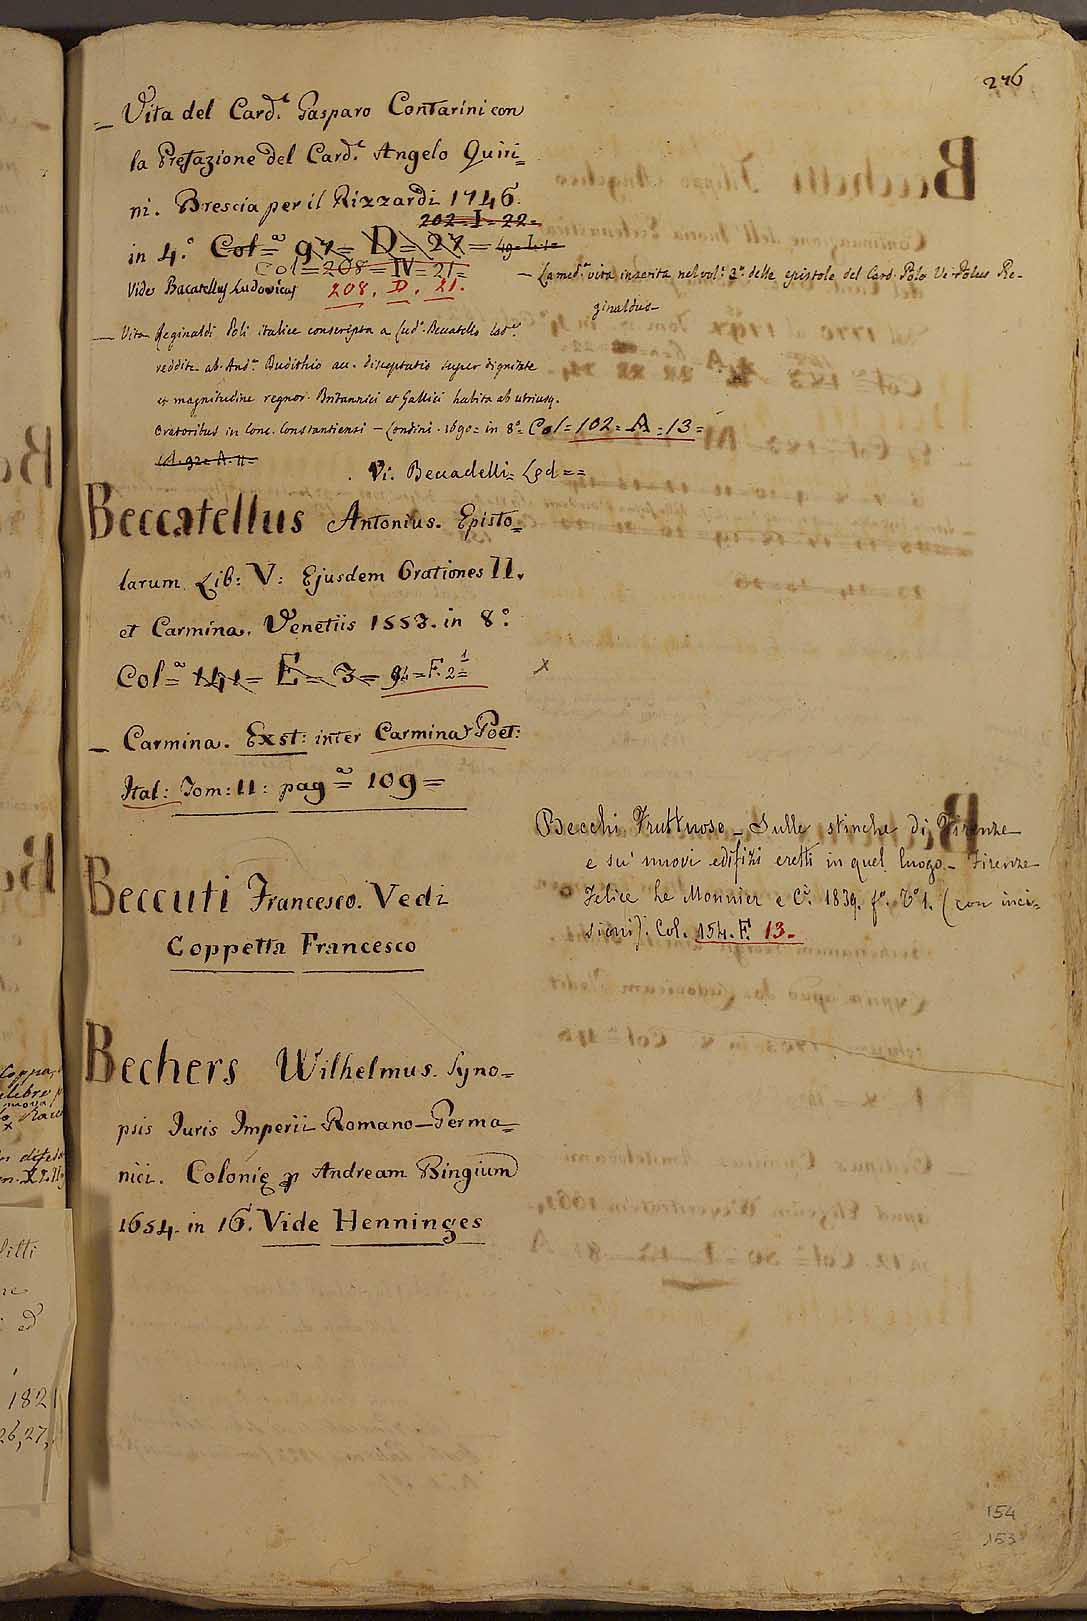 276
— Vita del Card.l Gasparo Contarini con
la Prefazione del Card.l Angelo Quiri=
ni. Brescia per il Rizzardi 1746.
202=I=22=
in 4.° Col=a 97= D= 27= 49= I.1=
Col=208=IV=21=
Vide Bacatellus Ludovicus 208. D. 21.
— La med.a vita inserita nel vol: 2.° delle epistole del Card. Polo Ve. Polus Re-
ginaldus
— Vita Reginaldi Poli italice conscripta a Lud.o Beccatello lat.e
reddita ab And.a Dudithio acc. disceptatio super dignitate
et magnitudine regnor. Britannici et Gallici habita ab utriusq.
Oratoribus in Conc. Constantiensi — Londini. 1690= in 8.°= Col=102= A=13=
Col. 92= A. 11=
Vi: Beccadelli= Lod==
Beccatellus Antonius. Episto=
larum Lib: V: Ejusdem Orationes II.
et Carmina. Venetiis 1553. in 8.°
Col=a 141= E= 3= 94=F. 2=1
x
— Carmina. Exst: inter Carmina Poet:
Ital: Tom: 11: pag=a 109=
Beccuti Francesco. Vedi
Coppetta Francesco
Becchi Fruttuoso — Sulle stinche di Firenze
e su' nuovi edifizi eretti in quel luogo — Firenze
Felice Le Monnier e C.i 1839. f.° T.° 1. (con inci-
sioni). Col. 154. F. 13.
Bechers Wilhelmus. Syno=
psis Juris Imperii Romano—Germa=
nici. Colonię p Andream Bingium
1654. in 16. Vide Henninges
154
153